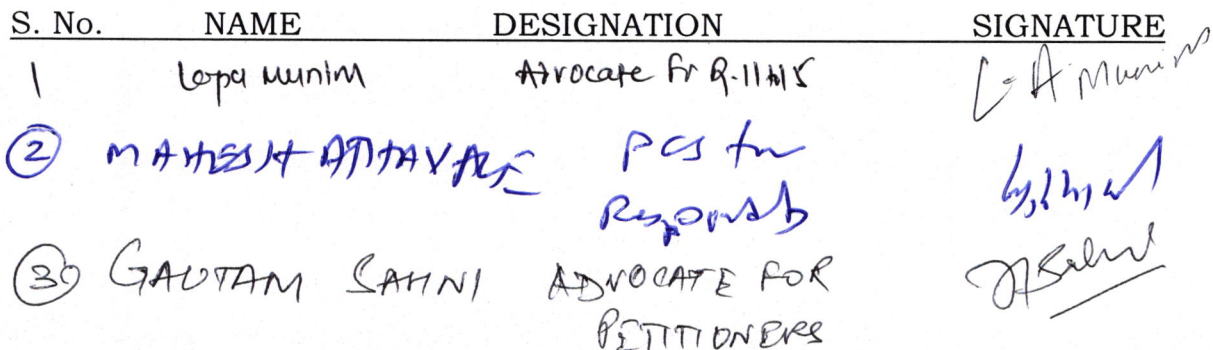 S. No. NAME DESIGNATION SIGNATURE
1 Lopa Munim Advocate for R-11 to 15 L A Munim
2 MAHESH ATHAVALE PCS for
Respondents
3 GAUTAM SAHNI ADVOCATE FOR GSahni
PETITIONERS